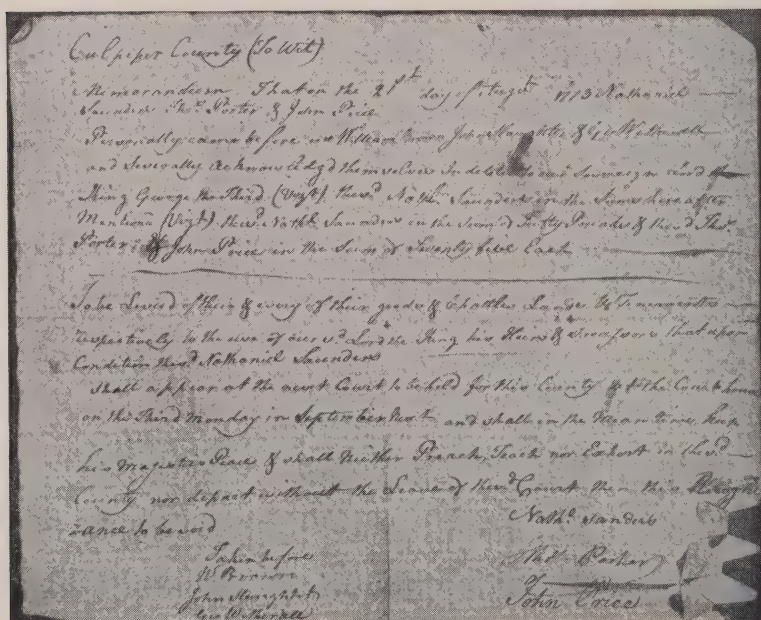 Culpiper County (To Wit)
Memorandum That on the 21st day of August 1773 Nathaniel
Saunders Thos. Porter & John Price
Personally came before me William Brown John Slaughter & Geo Witherall
and Severally acknowledgd themselves Indebted to our Sovereign Lord the
King George the Third (Vizt) the sd. Nathl. Saunders in the Sum hereafter
Mentiond (Vizt) the sd Nathl. Saunders in the Sum of Fifty Pounds & the sd Thos.
Porter & John Price in the Sum of Twenty five Each
To be Levied of their & every of their goods & Chattles Lands & Tenements
respectively to the use of our sd Lord the King his Heirs & Successors that upon
Condition the sd Nathaniel Saunders
Shall appear at the next Court to be held for this County at the Courthouse
on the Third Monday in September Next and shall in the Mean time, keep
his Majesties Peace & shall Neither Preach, Teach nor Exhort in the sd
County nor depart without the Leave of the sd Court then this Recogni
zance to be void
Nathl. Sanders
Taken before
W Brown
John Slaughter
Geo Witherall
Thos Porter
John Price